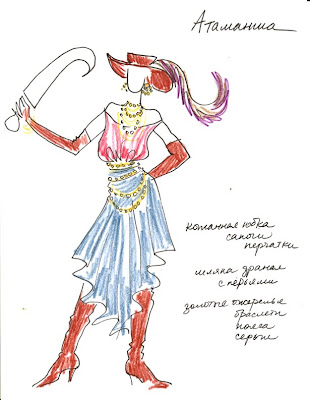 Атаманша
кожанная юбка
сапоги
перчатки
шляпа драная
с перьями
золотые ожерелье
браслеты
пояса
серьги